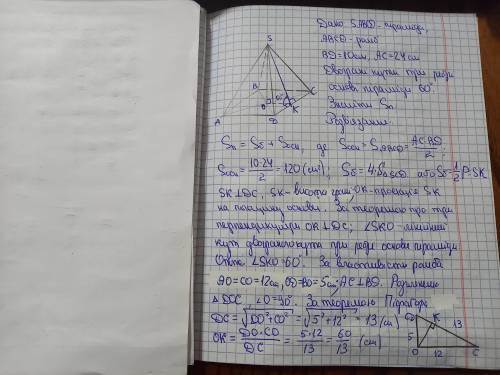 Дано SABCD - піраміда,
ABCD - ромб
BD = 10 см, AC = 24 см
Двогранні кути при ребрі
основи піраміди 60°.
Знайти Sп
Розв'язання.
S
B
C
O
60°
K
A
D
Sп = Sб + Sосн, де Sосн = SABCD = AC·BD/2
Sосн = 10·24/2 = 120 (см²); Sб = 4·S△SCD або Sб = 1/2 P·SK
SK⊥DC, SK - висота грані OK - проекція SK
на площину основи. За теоремою про три
перпендикуляри OK⊥DC; ∠SKO - лінійний
кут двогранного кута при ребрі основи піраміди
Отже, ∠SKO = 60°. За властивістю ромба
AO = CO = 12 см, OD = BO = 5 см; AC⊥BD. Розглянемо
△DOC, ∠O = 90°. За теоремою Піфагора
DC = √DO² + CO² = √5² + 12² = 13 (см)
OK = DO·CO/DC = 5·12/13 = 60/13 (см)
D
K
13
5
O
12
C